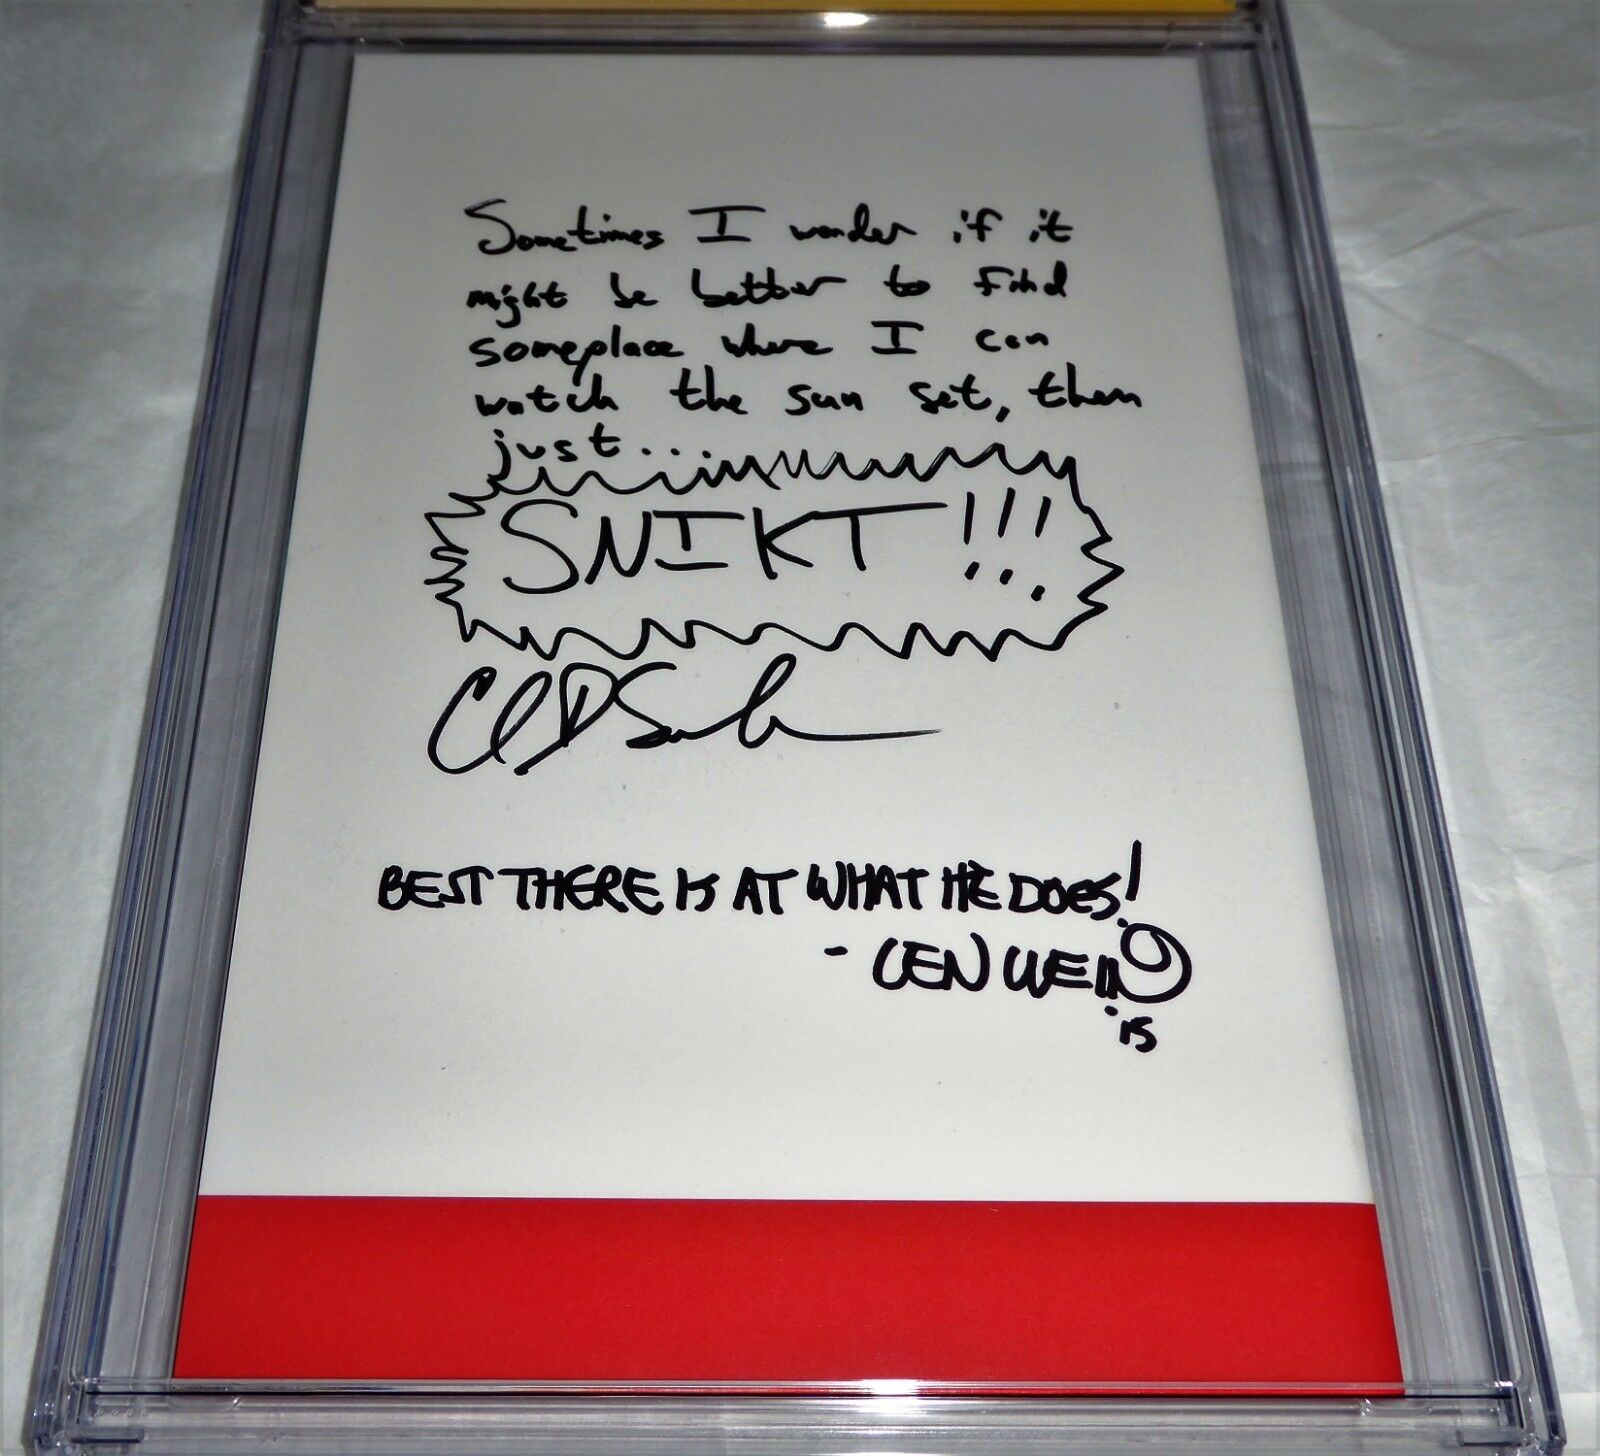 Sometimes I wonder if it
might be better to find
someplace where I can
watch the sun set, then
just...
SNIKT!!!
BEST THERE IS AT WHAT HE DOES!
- LEN WEIN
'15